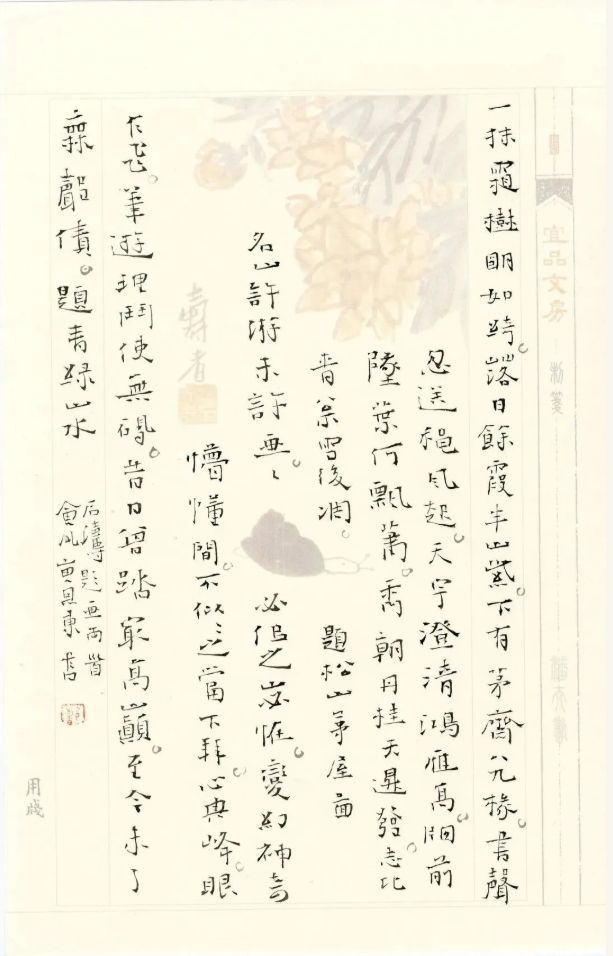 宜品文房
一抹霜樹明如綺。落日餘霞半山紫。下有茅齋八九椽。書聲
忽送穐風起。天宇澄清鴻雁高。前
墜葉何飄蕭。朝丹桂天邊發。志比
青松雪後凋。 題松山茅屋畵
名山許游未許畫。畫必似之山必怪。變幻神奇
懵懂間。不似似之當下拜。心與峰。眼
乍飛。筆遊理鬥使無礙。昔日曾踏最高巔。至今未了
無聲債。題青綠山水
石濤題畫兩首
書
壽者
用箋